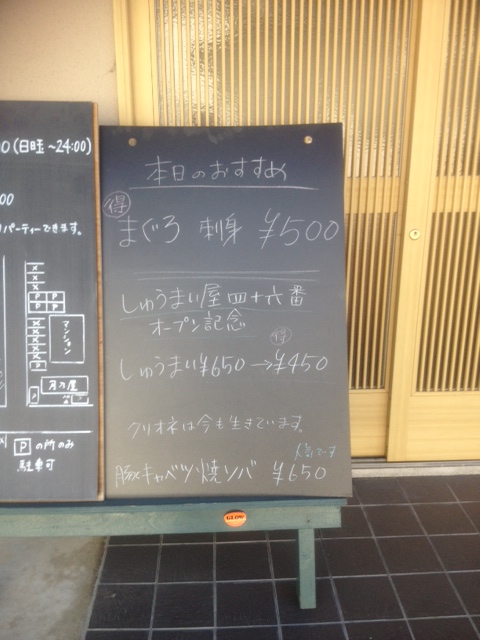 0(日曜~24:00)
00
パーティーできます。
P P
P P
マンション
P
Pの所のみ
駐車可
本日のおすすめ
得
まぐろ 刺身 ¥500
しゅうまい屋四十六番
オープン記念
得
しゅうまい¥650→¥450
クリオネは今も生きています。
人気です
豚キャベツ焼ソバ ¥650
GLOW